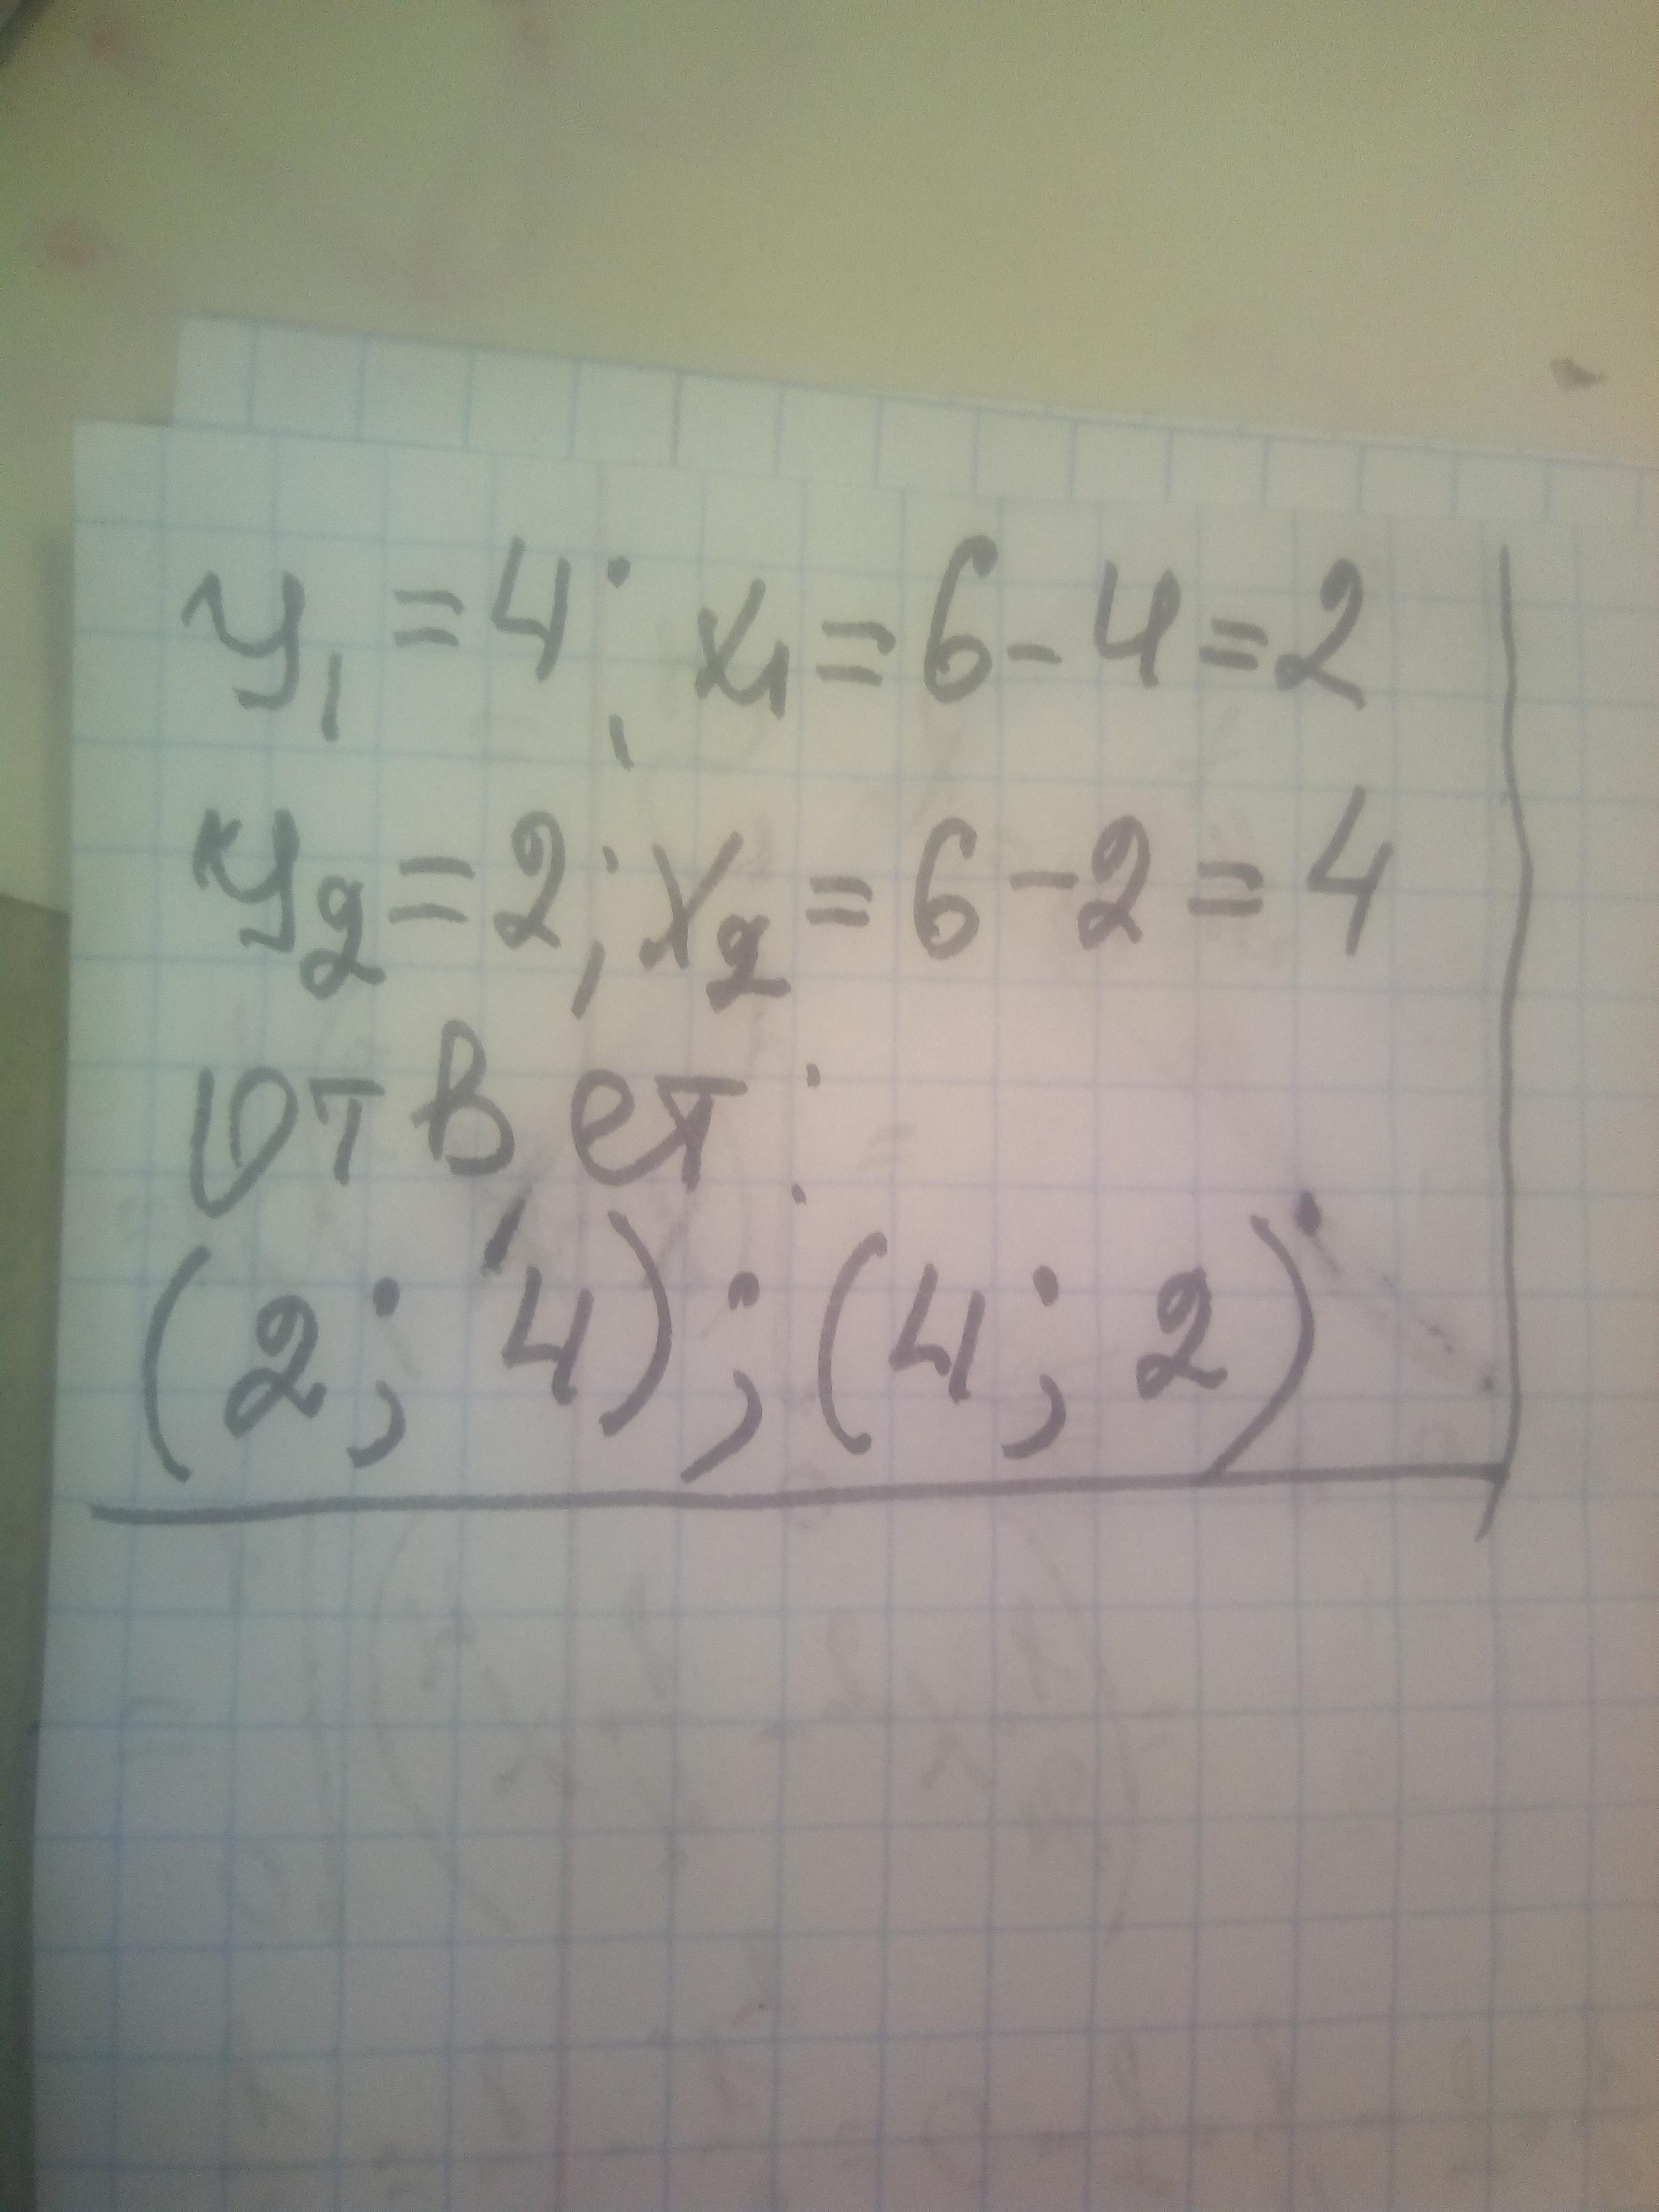 у₁ = 4; х₁ = 6 - 4 = 2
у₂ = 2; х₂ = 6 - 2 = 4
Ответ:
(2; 4); (4; 2)